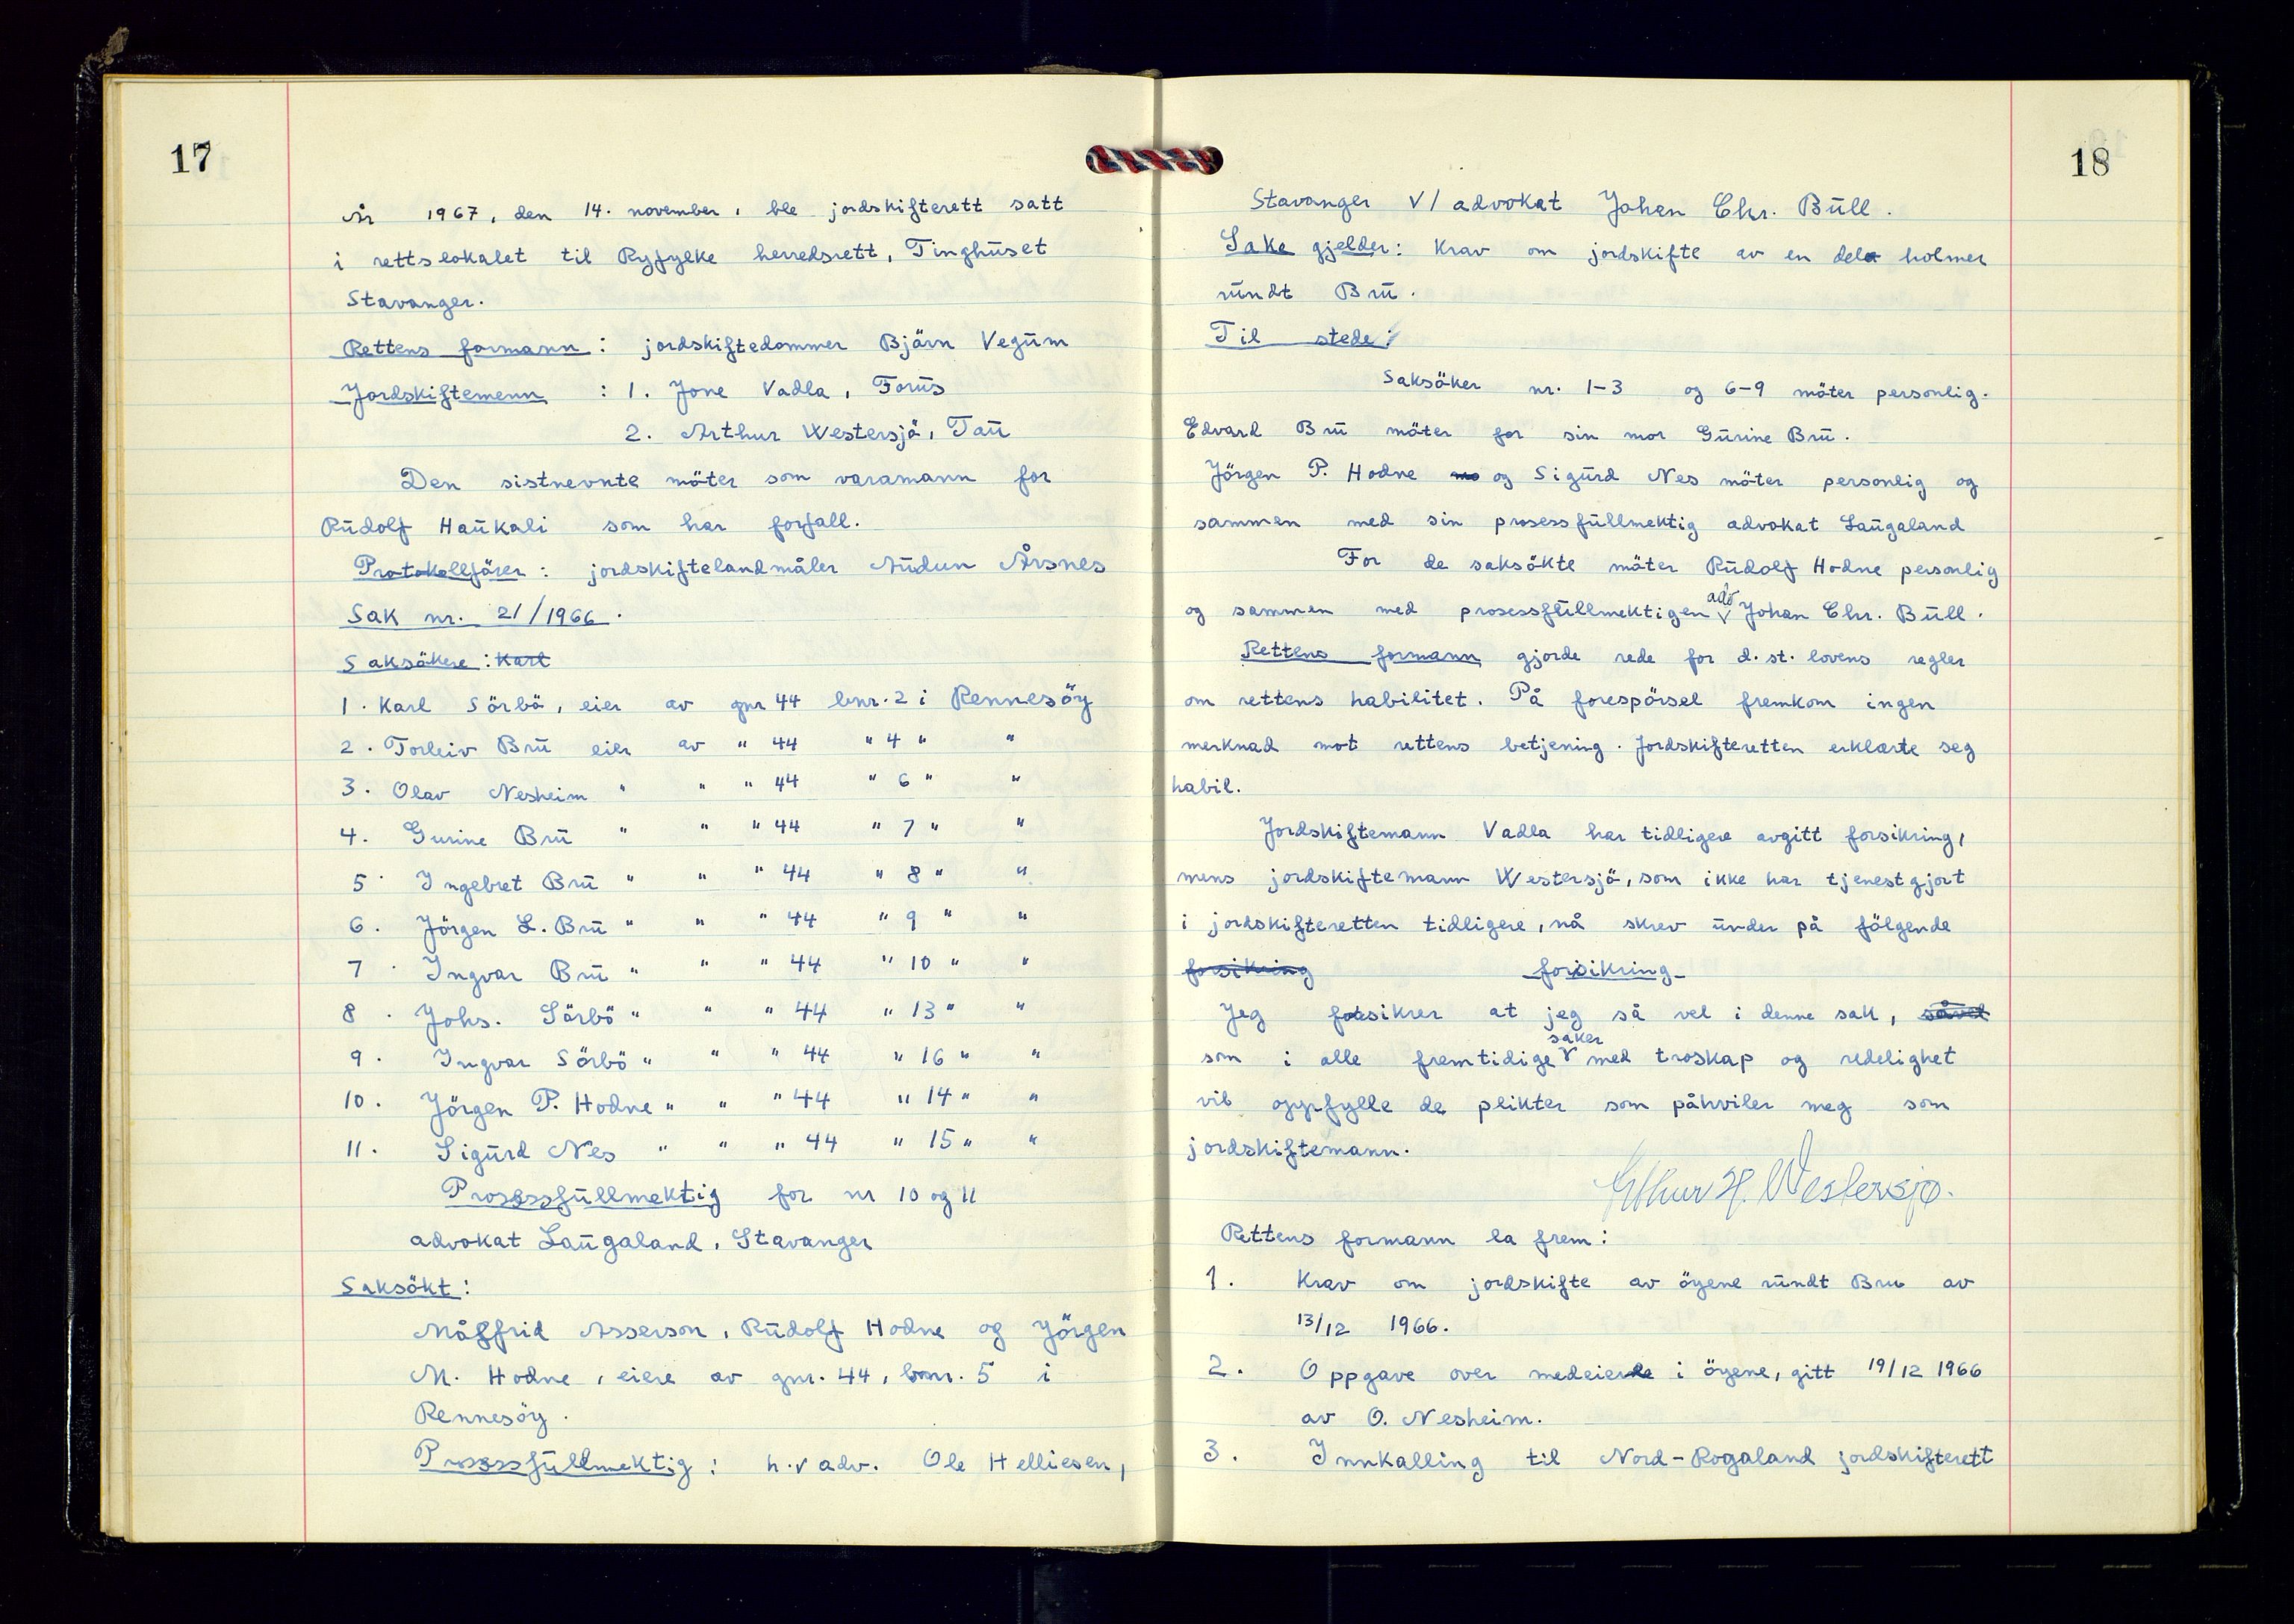 17
År 1967, den 14. november, ble jordskifterett satt
i rettslokalet til Ryfylke herredsrett, Tinghuset
Stavanger.
Rettens formann: jordskiftedommer Björn Vegum
Jordskiftemenn : 1. Jone Vadla, Forus
2. Arthur Westersjö, Tau
Den sistnevnte möter som varamann for
Rudolf Haukali som har forfall.
Protokollförer: jordskiftelandmåler Audun Årsnes
Sak nr. 21/1966.
Saksökere: Karl
1. Karl Sörbö, eier av gnr 44 bnr. 2 i Rennesöy
2. Torleiv Bru eier av " 44 " 4 " "
3. Olav Nesheim " " " 44 " 6 " "
4. Gurine Bru " " " 44 " 7 " "
5. Ingebret Bru " " " 44 " 8 " "
6. Jörgen L. Bru " " " 44 " 9 " "
7. Ingvar Bru " " " 44 " 10 " "
8. Johs. Sörbö " " " 44 " 13 " "
9. Ingvar Sörbö " " " 44 " 16 " "
10. Jörgen P. Hodne " " " 44 " 14 " "
11. Sigurd Nes " " " 44 " 15 " "
Prosessfullmektig for nr 10 og 11
advokat Laugaland, Stavanger
Saksökt:
Målfrid Asserson, Rudolf Hodne og Jörgen
M. Hodne, eiere av gnr. 44, bnr. 5 i
Rennesöy.
Prosessfullmektig: h.r adv. Ole Helliesen,
18
Stavanger v/ advokat Johan Chr. Bull.
Sake gjelder: Krav om jordskifte av en del holmer
rundt Bru.
Til stede:
Saksöker nr. 1-3 og 6-9 möter personlig.
Edvard Bru möter for sin mor Gurine Bru.
Jörgen P. Hodne mo og Sigurd Nes möter personlig og
sammen med sin prosessfullmektig advokat Laugaland
For de saksökte möter Rudolf Hodne personlig
og sammen med prosessfullmektigen adv Johan Chr. Bull.
Rettens formann gjorde rede for d.st.lovens regler
om rettens habilitet. På forespörsel fremkom ingen
merknad mot rettens betjening. Jordskifteretten erklærte seg
habil.
Jordskiftemann Vadla har tidligere avgitt forsikring,
mens jordskiftemann Westersjö, som ikke har tjenestgjort
i jordskifteretten tidligere, nå skrev under på fölgende
forsikring forsikring
Jeg forsikrer at jeg så vel i denne sak, såvel
som i alle fremtidige saker med troskap og redelighet
vil oppfylle de plikter som påhviler meg som
jordskiftemann.
Arthur H. Westersjø.
Rettens formann la frem:
1. Krav om jordskifte av öyene rundt Bru av
13/12 1966.
2. Oppgave over medeiere i öyene, gitt 19/12 1966
av O. Nesheim.
3. Innkalling til Nord-Rogaland jordskifterett